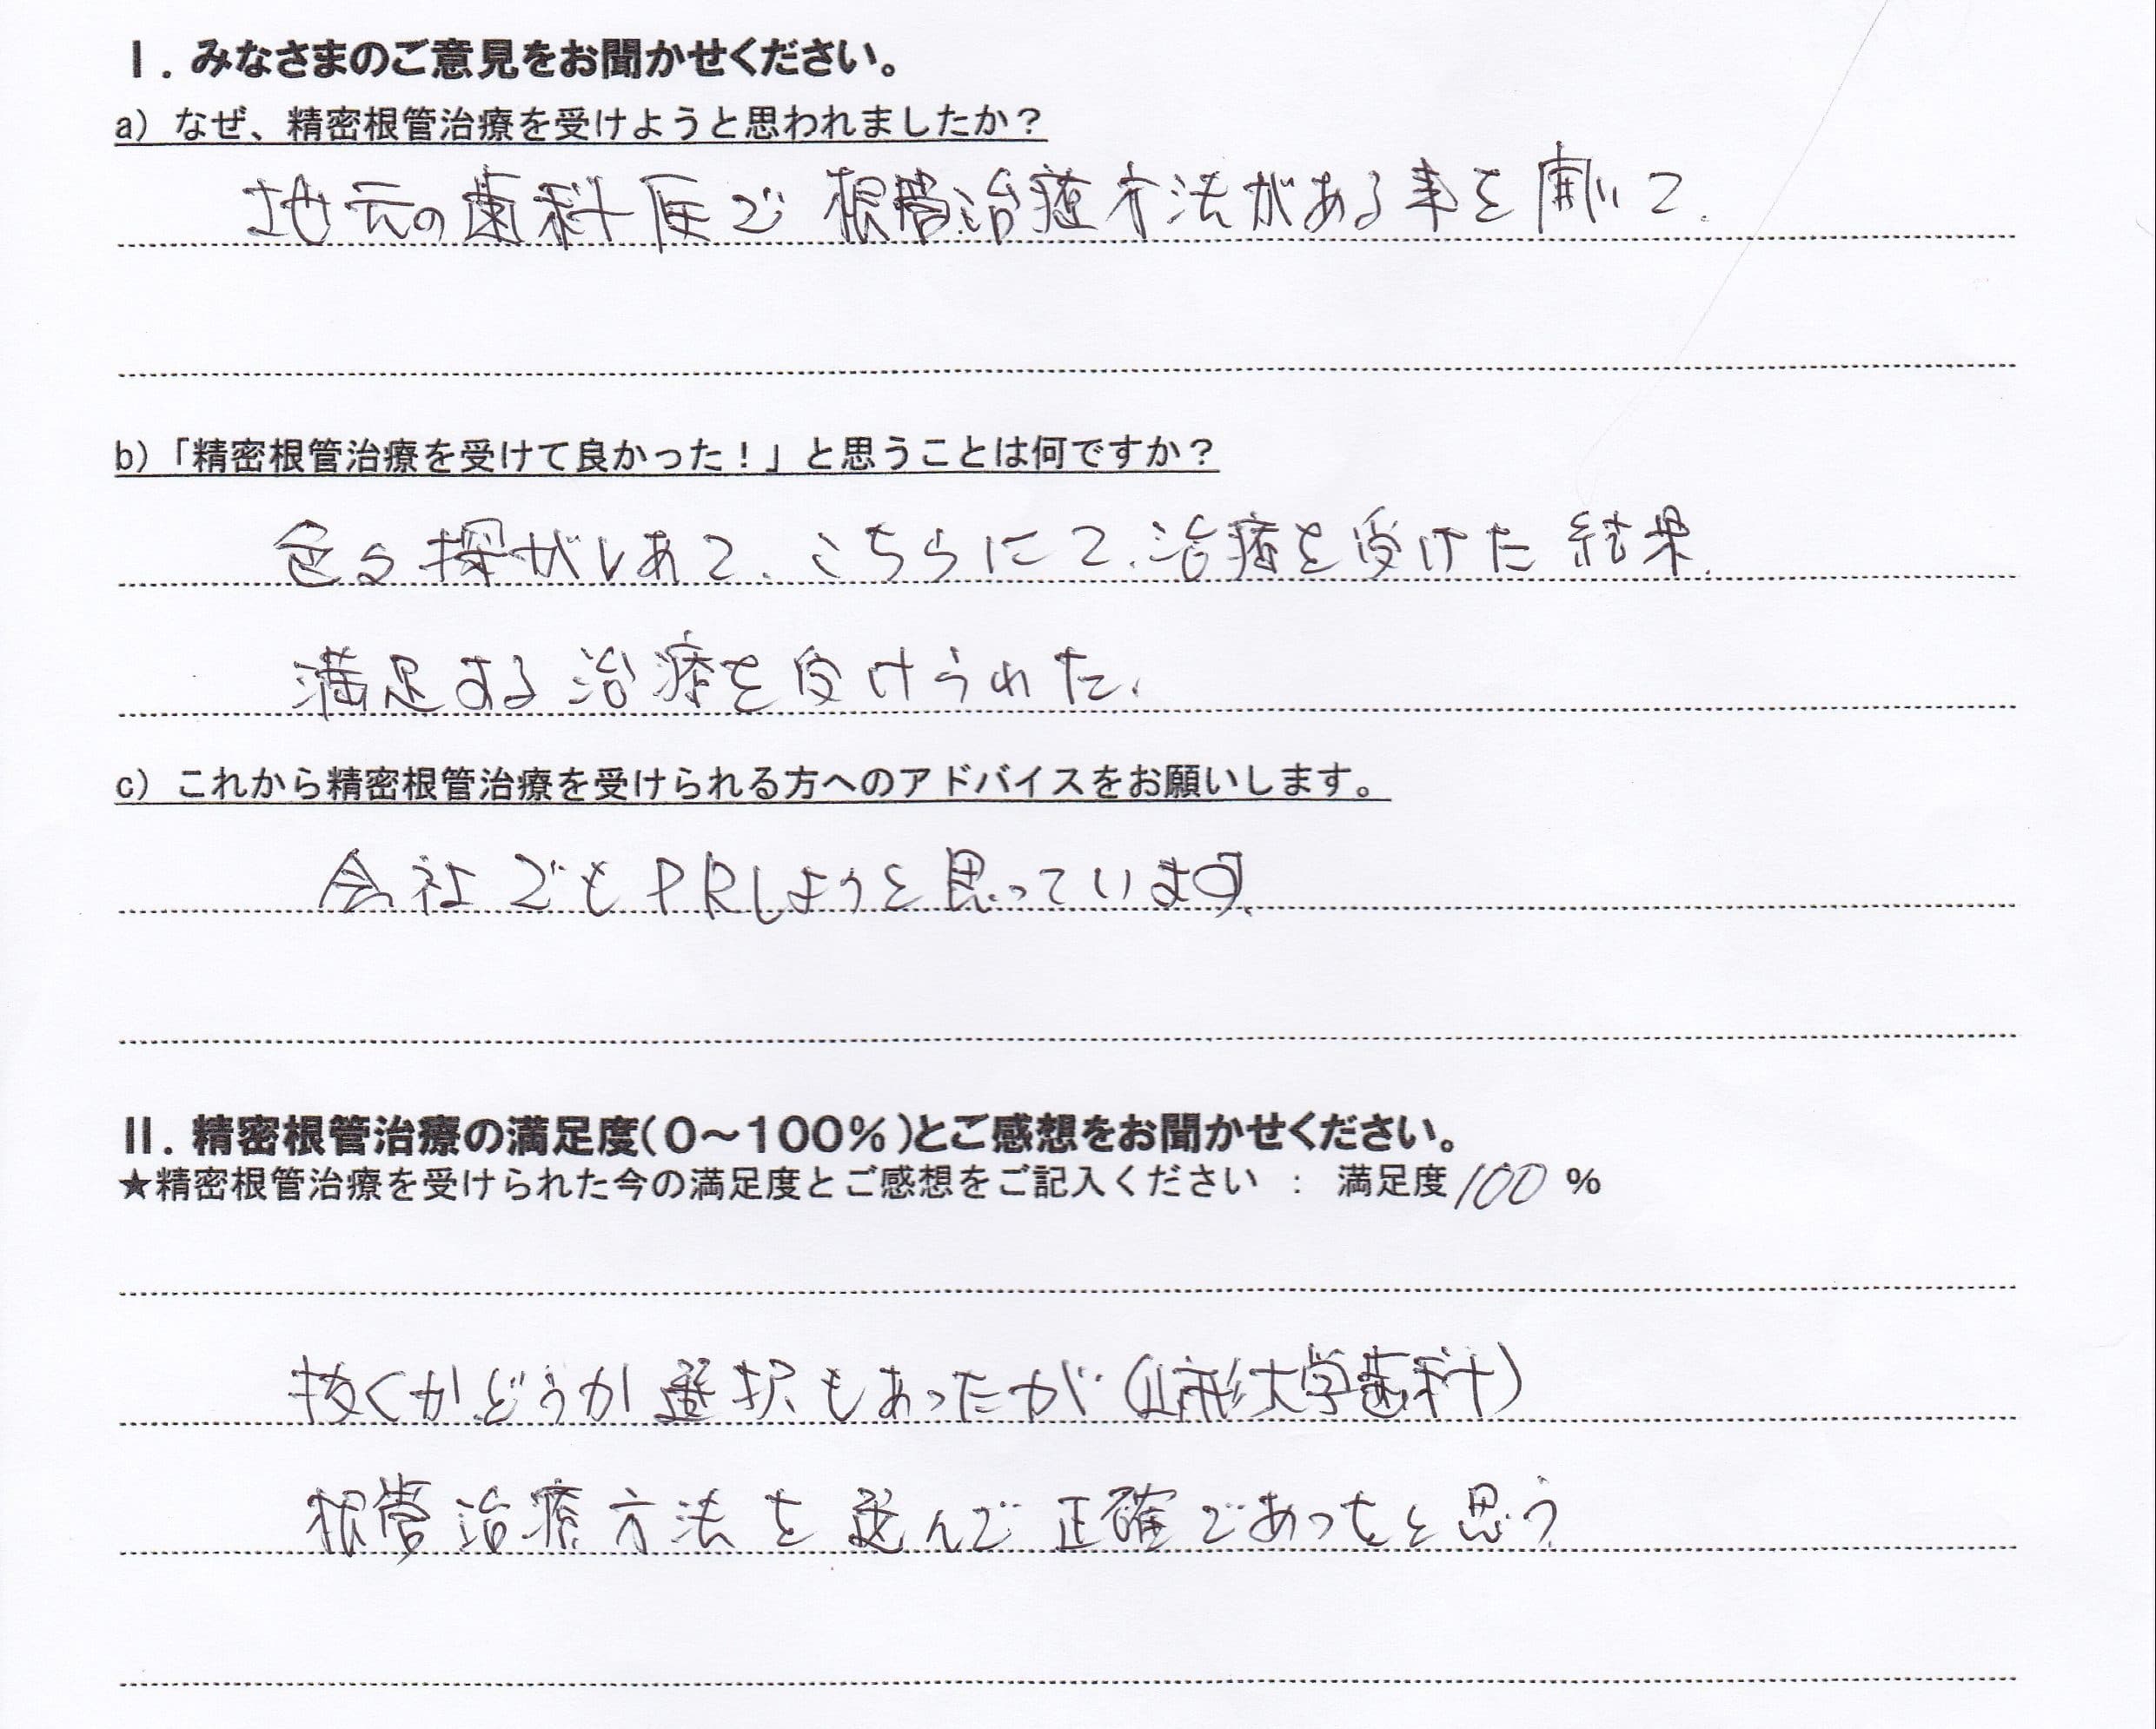 Ⅰ. みなさまのご意見をお聞かせください。
a) なぜ、精密根管治療を受けようと思われましたか？
地元の歯科医で 根管治療方法がある事を聞いて、
b)「精密根管治療を受けて良かった！」と思うことは何ですか？
色々探がしあて、こちらにて、治療を受けた結果、
満足する治療を受けられた、
c) これから精密根管治療を受けられる方へのアドバイスをお願いします。
会社でもPRしようと思っています、
Ⅱ. 精密根管治療の満足度(0～100%)とご感想をお聞かせください。
★精密根管治療を受けられた今の満足度とご感想をご記入ください ： 満足度 100 %
抜くかどうか選択もあったが (山形大学歯科)
根管治療方法を選んで正確であったと思う